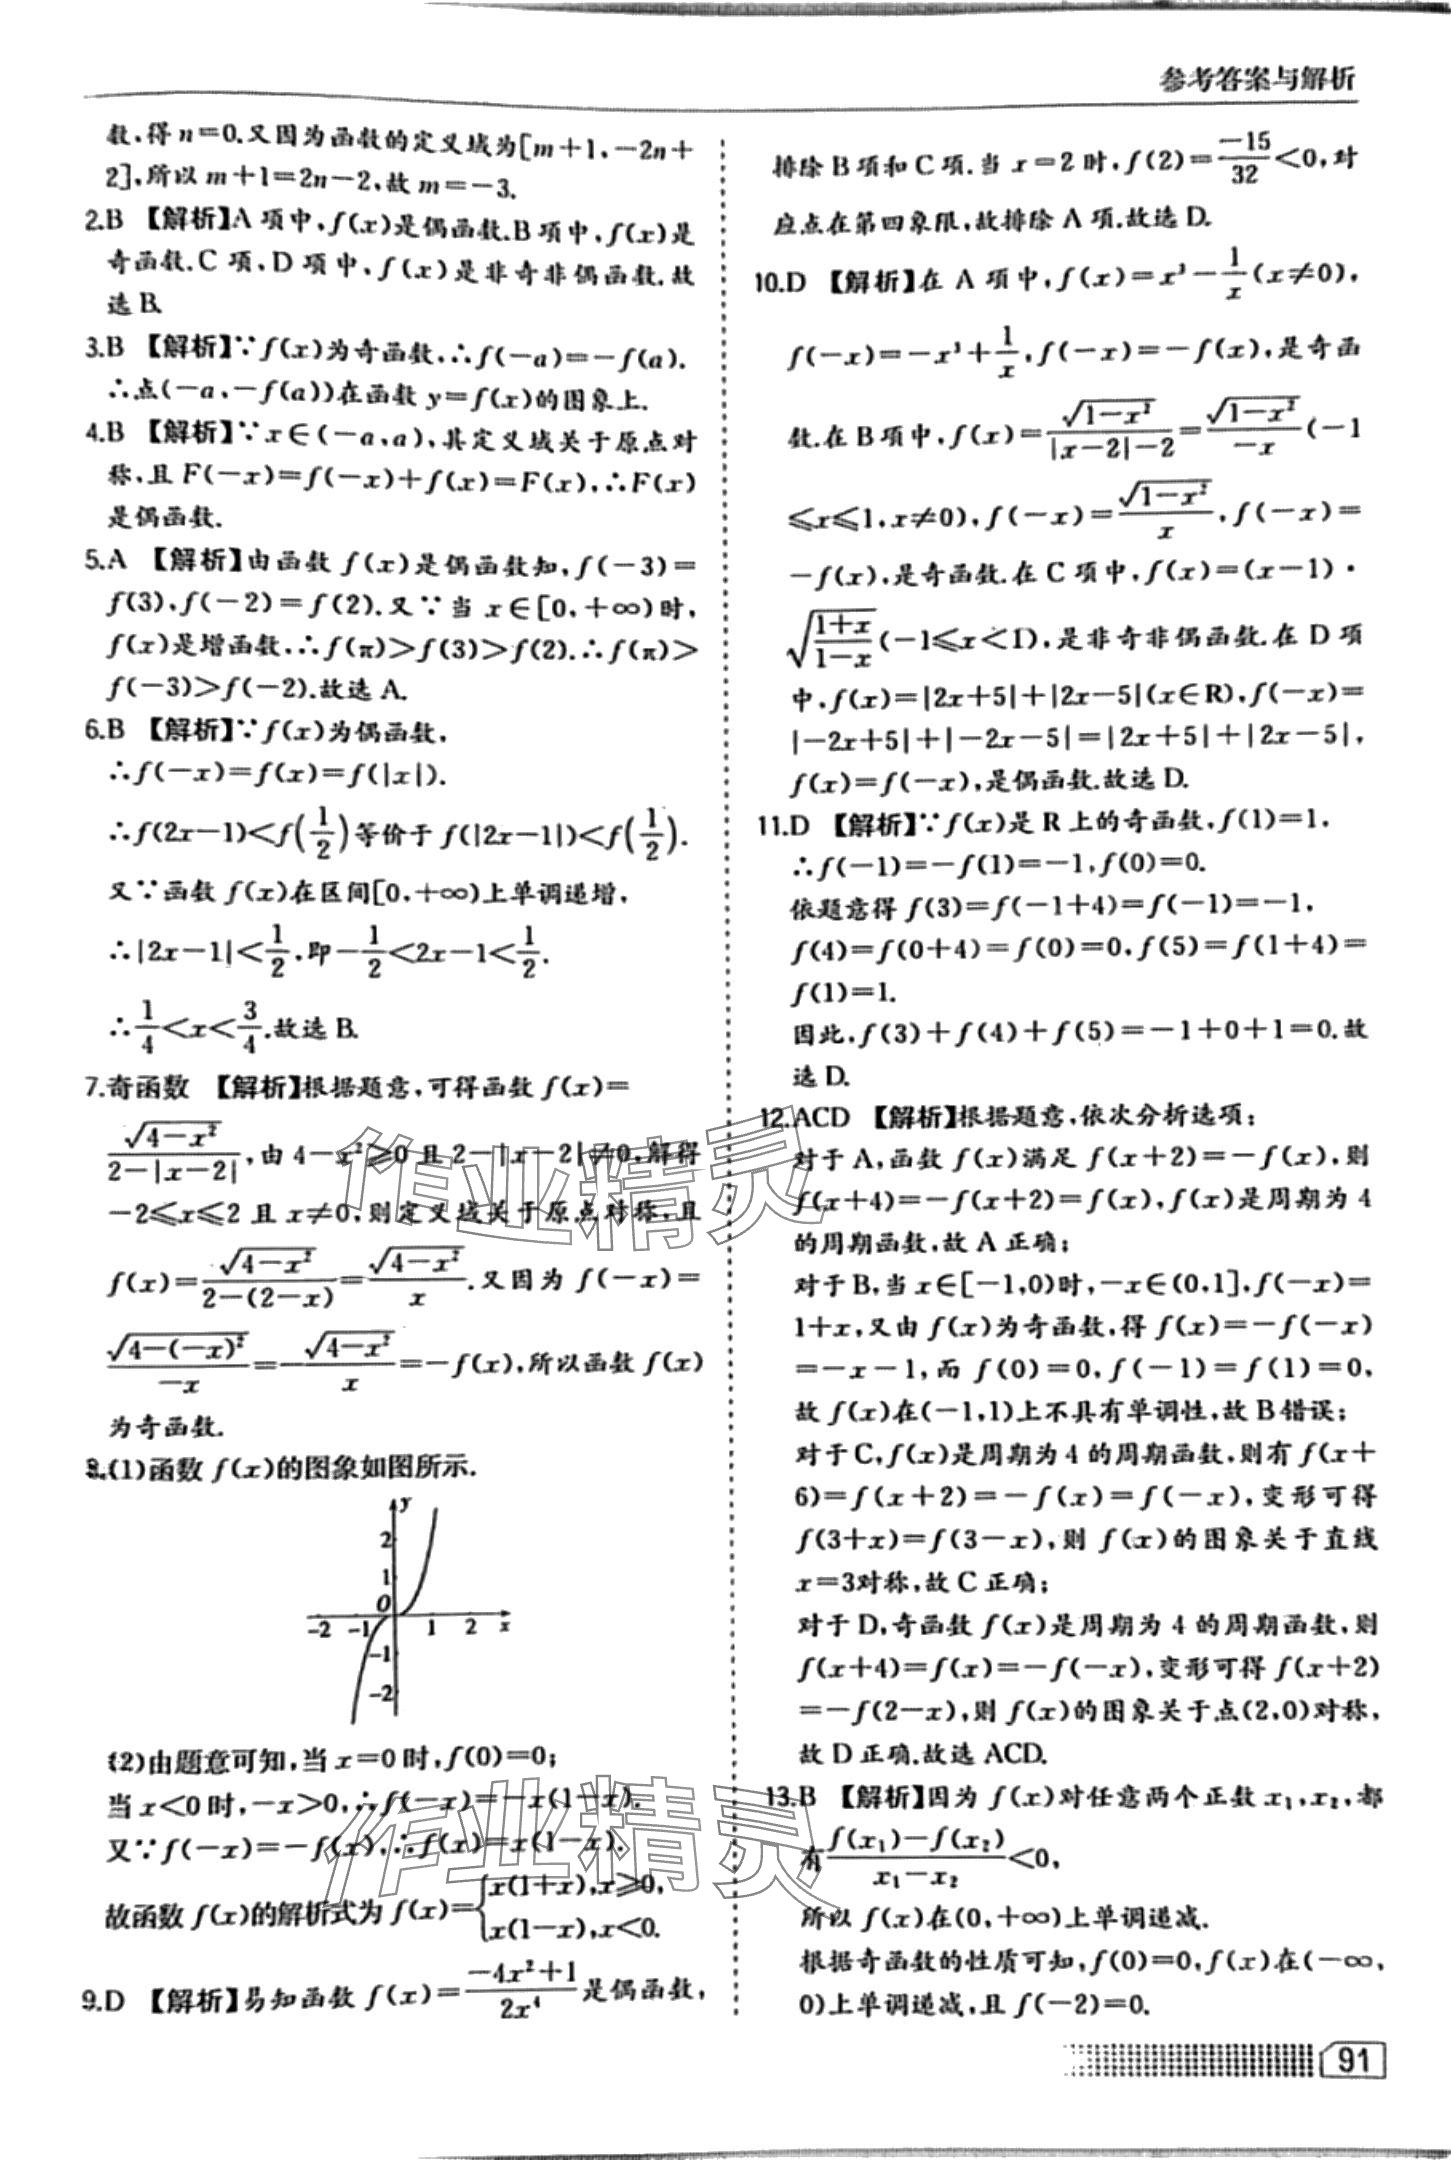 参考答案与解析
数,得 n=0.又因为函数的定义域为[m+1,-2n+
2],所以 m+1=2n-2,故 m=-3.
2.B 【解析】A 项中,f(x)是偶函数.B 项中,f(x)是
奇函数.C 项、D 项中,f(x)是非奇非偶函数.故
选 B.
3.B 【解析】∵f(x)为奇函数,∴f(-a)=-f(a).
∴点(-a,-f(a))在函数 y=f(x)的图象上.
4.B 【解析】∵x∈(-a,a),其定义域关于原点对
称,且 F(-x)=f(-x)+f(x)=F(x),∴F(x)
是偶函数.
5.A 【解析】由函数 f(x)是偶函数知,f(-3)=
f(3),f(-2)=f(2).又∵当 x∈[0,+∞)时,
f(x)是增函数,∴f(π)>f(3)>f(2).∴f(π)>
f(-3)>f(-2).故选 A.
6.B 【解析】∵f(x)为偶函数,
∴f(-x)=f(x)=f(|x|).
∴f(2x-1)<f(1/2)等价于 f(|2x-1|)<f(1/2).
又∵函数 f(x)在区间[0,+∞)上单调递增,
∴|2x-1|<1/2,即-1/2<2x-1<1/2.
∴1/4<x<3/4.故选 B.
7.奇函数 【解析】根据题意,可得函数 f(x)=
√(4-x²)/(2-|x-2|),由 4-x²≥0 且 2-|x-2|≠0,解得
-2≤x≤2 且 x≠0,则定义域关于原点对称,且
f(x)=√(4-x²)/(2-(2-x))=√(4-x²)/x.又因为 f(-x)=
√(4-(-x)²)/(-x)=-√(4-x²)/x=-f(x),所以函数 f(x)
为奇函数.
8.(1)函数 f(x)的图象如图所示.
y
2
1
O
-2 -1 1 2 x
-1
-2
(2)由题意可知,当 x=0 时,f(0)=0;
当 x<0 时,-x>0,∴f(-x)=-x(1-x).
又∵f(-x)=-f(x),∴f(x)=x(1-x).
故函数 f(x)的解析式为 f(x)={x(1+x),x≥0,
x(1-x),x<0.
9.D 【解析】易知函数 f(x)=(-4x²+1)/(2x⁴)是偶函数,
排除 B 项和 C 项.当 x=2 时,f(2)=-15/32<0,对
应点在第四象限,故排除 A 项.故选 D.
10.D 【解析】在 A 项中,f(x)=x³-1/x(x≠0),
f(-x)=-x³+1/x,f(-x)=-f(x),是奇函
数.在 B 项中,f(x)=√(1-x²)/(|x-2|-2)=√(1-x²)/(-x)(-1
≤x≤1,x≠0),f(-x)=√(1-x²)/x,f(-x)=
-f(x),是奇函数.在 C 项中,f(x)=(x-1)·
√((1+x)/(1-x))(-1≤x<1),是非奇非偶函数.在 D 项
中,f(x)=|2x+5|+|2x-5|(x∈R),f(-x)=
|-2x+5|+|-2x-5|=|2x+5|+|2x-5|,
f(x)=f(-x),是偶函数.故选 D.
11.D 【解析】∵f(x)是 R 上的奇函数,f(1)=1,
∴f(-1)=-f(1)=-1,f(0)=0.
依题意得 f(3)=f(-1+4)=f(-1)=-1,
f(4)=f(0+4)=f(0)=0,f(5)=f(1+4)=
f(1)=1.
因此,f(3)+f(4)+f(5)=-1+0+1=0.故
选 D.
12.ACD 【解析】根据题意,依次分析选项:
对于 A,函数 f(x)满足 f(x+2)=-f(x),则
f(x+4)=-f(x+2)=f(x),f(x)是周期为 4
的周期函数,故 A 正确;
对于 B,当 x∈[-1,0)时,-x∈(0,1],f(-x)=
1+x,又由 f(x)为奇函数,得 f(x)=-f(-x)
=-x-1,而 f(0)=0,f(-1)=f(1)=0,
故 f(x)在(-1,1)上不具有单调性,故 B 错误;
对于 C,f(x)是周期为 4 的周期函数,则有 f(x+
6)=f(x+2)=-f(x)=f(-x),变形可得
f(3+x)=f(3-x),则 f(x)的图象关于直线
x=3对称,故 C 正确;
对于 D,奇函数 f(x)是周期为 4 的周期函数,则
f(x+4)=f(x)=-f(-x),变形可得 f(x+2)
=-f(2-x),则 f(x)的图象关于点(2,0)对称,
故 D 正确.故选 ACD.
13.B 【解析】因为 f(x)对任意两个正数 x₁,x₂,都
有(f(x₁)-f(x₂))/(x₁-x₂)<0,
所以 f(x)在(0,+∞)上单调递减.
根据奇函数的性质可知,f(0)=0,f(x)在(-∞,
0)上单调递减,且 f(-2)=0.
91
作业精灵
作业精灵